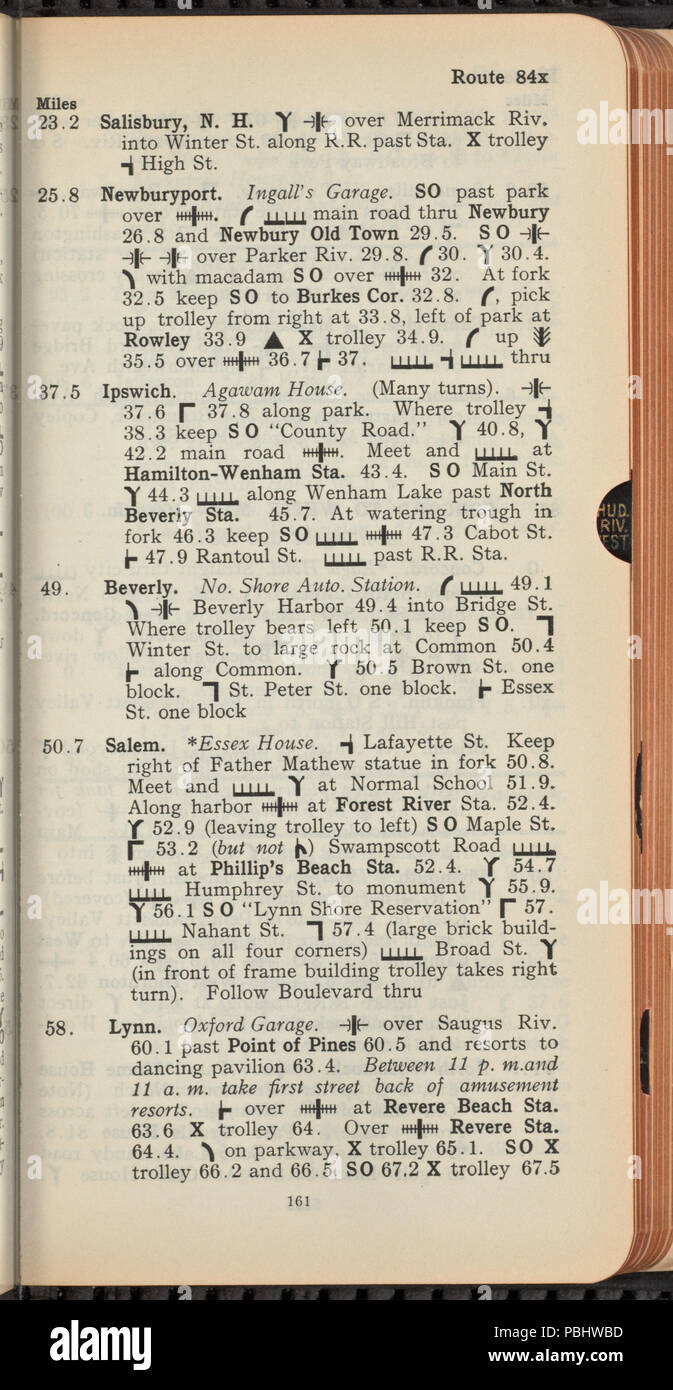 Route 84x
Miles
23.2 Salisbury, N. H. over Merrimack Riv.
into Winter St. along R.R. past Sta. X trolley
High St.
25.8 Newburyport. Ingall's Garage. SO past park
over . main road thru Newbury
26.8 and Newbury Old Town 29.5. SO
over Parker Riv. 29.8. 30. 30.4.
with macadam SO over 32. At fork
32.5 keep SO to Burkes Cor. 32.8. , pick
up trolley from right at 33.8, left of park at
Rowley 33.9 ▲ X trolley 34.9. up
35.5 over 36.7 37. thru
37.5 Ipswich. Agawam House. (Many turns).
37.6 37.8 along park. Where trolley
38.3 keep SO "County Road." 40.8,
42.2 main road . Meet and at
Hamilton-Wenham Sta. 43.4. SO Main St.
44.3 along Wenham Lake past North
Beverly Sta. 45.7. At watering trough in
fork 46.3 keep SO 47.3 Cabot St.
47.9 Rantoul St. past R.R. Sta.
49. Beverly. No. Shore Auto. Station. 49.1
Beverly Harbor 49.4 into Bridge St.
Where trolley bears left 50.1 keep SO.
Winter St. to large rock at Common 50.4
along Common. 50.5 Brown St. one
block. St. Peter St. one block. Essex
St. one block
50.7 Salem. *Essex House. Lafayette St. Keep
right of Father Mathew statue in fork 50.8.
Meet and at Normal School 51.9.
Along harbor at Forest River Sta. 52.4.
52.9 (leaving trolley to left) SO Maple St.
53.2 (but not ) Swampscott Road
at Phillip's Beach Sta. 52.4. 54.7
Humphrey St. to monument 55.9.
56.1 SO "Lynn Shore Reservation" 57.
Nahant St. 57.4 (large brick build-
ings on all four corners) Broad St.
(in front of frame building trolley takes right
turn). Follow Boulevard thru
58. Lynn. Oxford Garage. over Saugus Riv.
60.1 past Point of Pines 60.5 and resorts to
dancing pavilion 63.4. Between 11 p. m. and
11 a. m. take first street back of amusement
resorts. over at Revere Beach Sta.
63.6 X trolley 64. Over Revere Sta.
64.4. on parkway, X trolley 65.1. SO X
trolley 66.2 and 66.5 SO 67.2 X trolley 67.5
161
HUD.
RIV.
EST
alamy
alamy
alamy
alamy
Image ID: PBHWBD
www.alamy.com